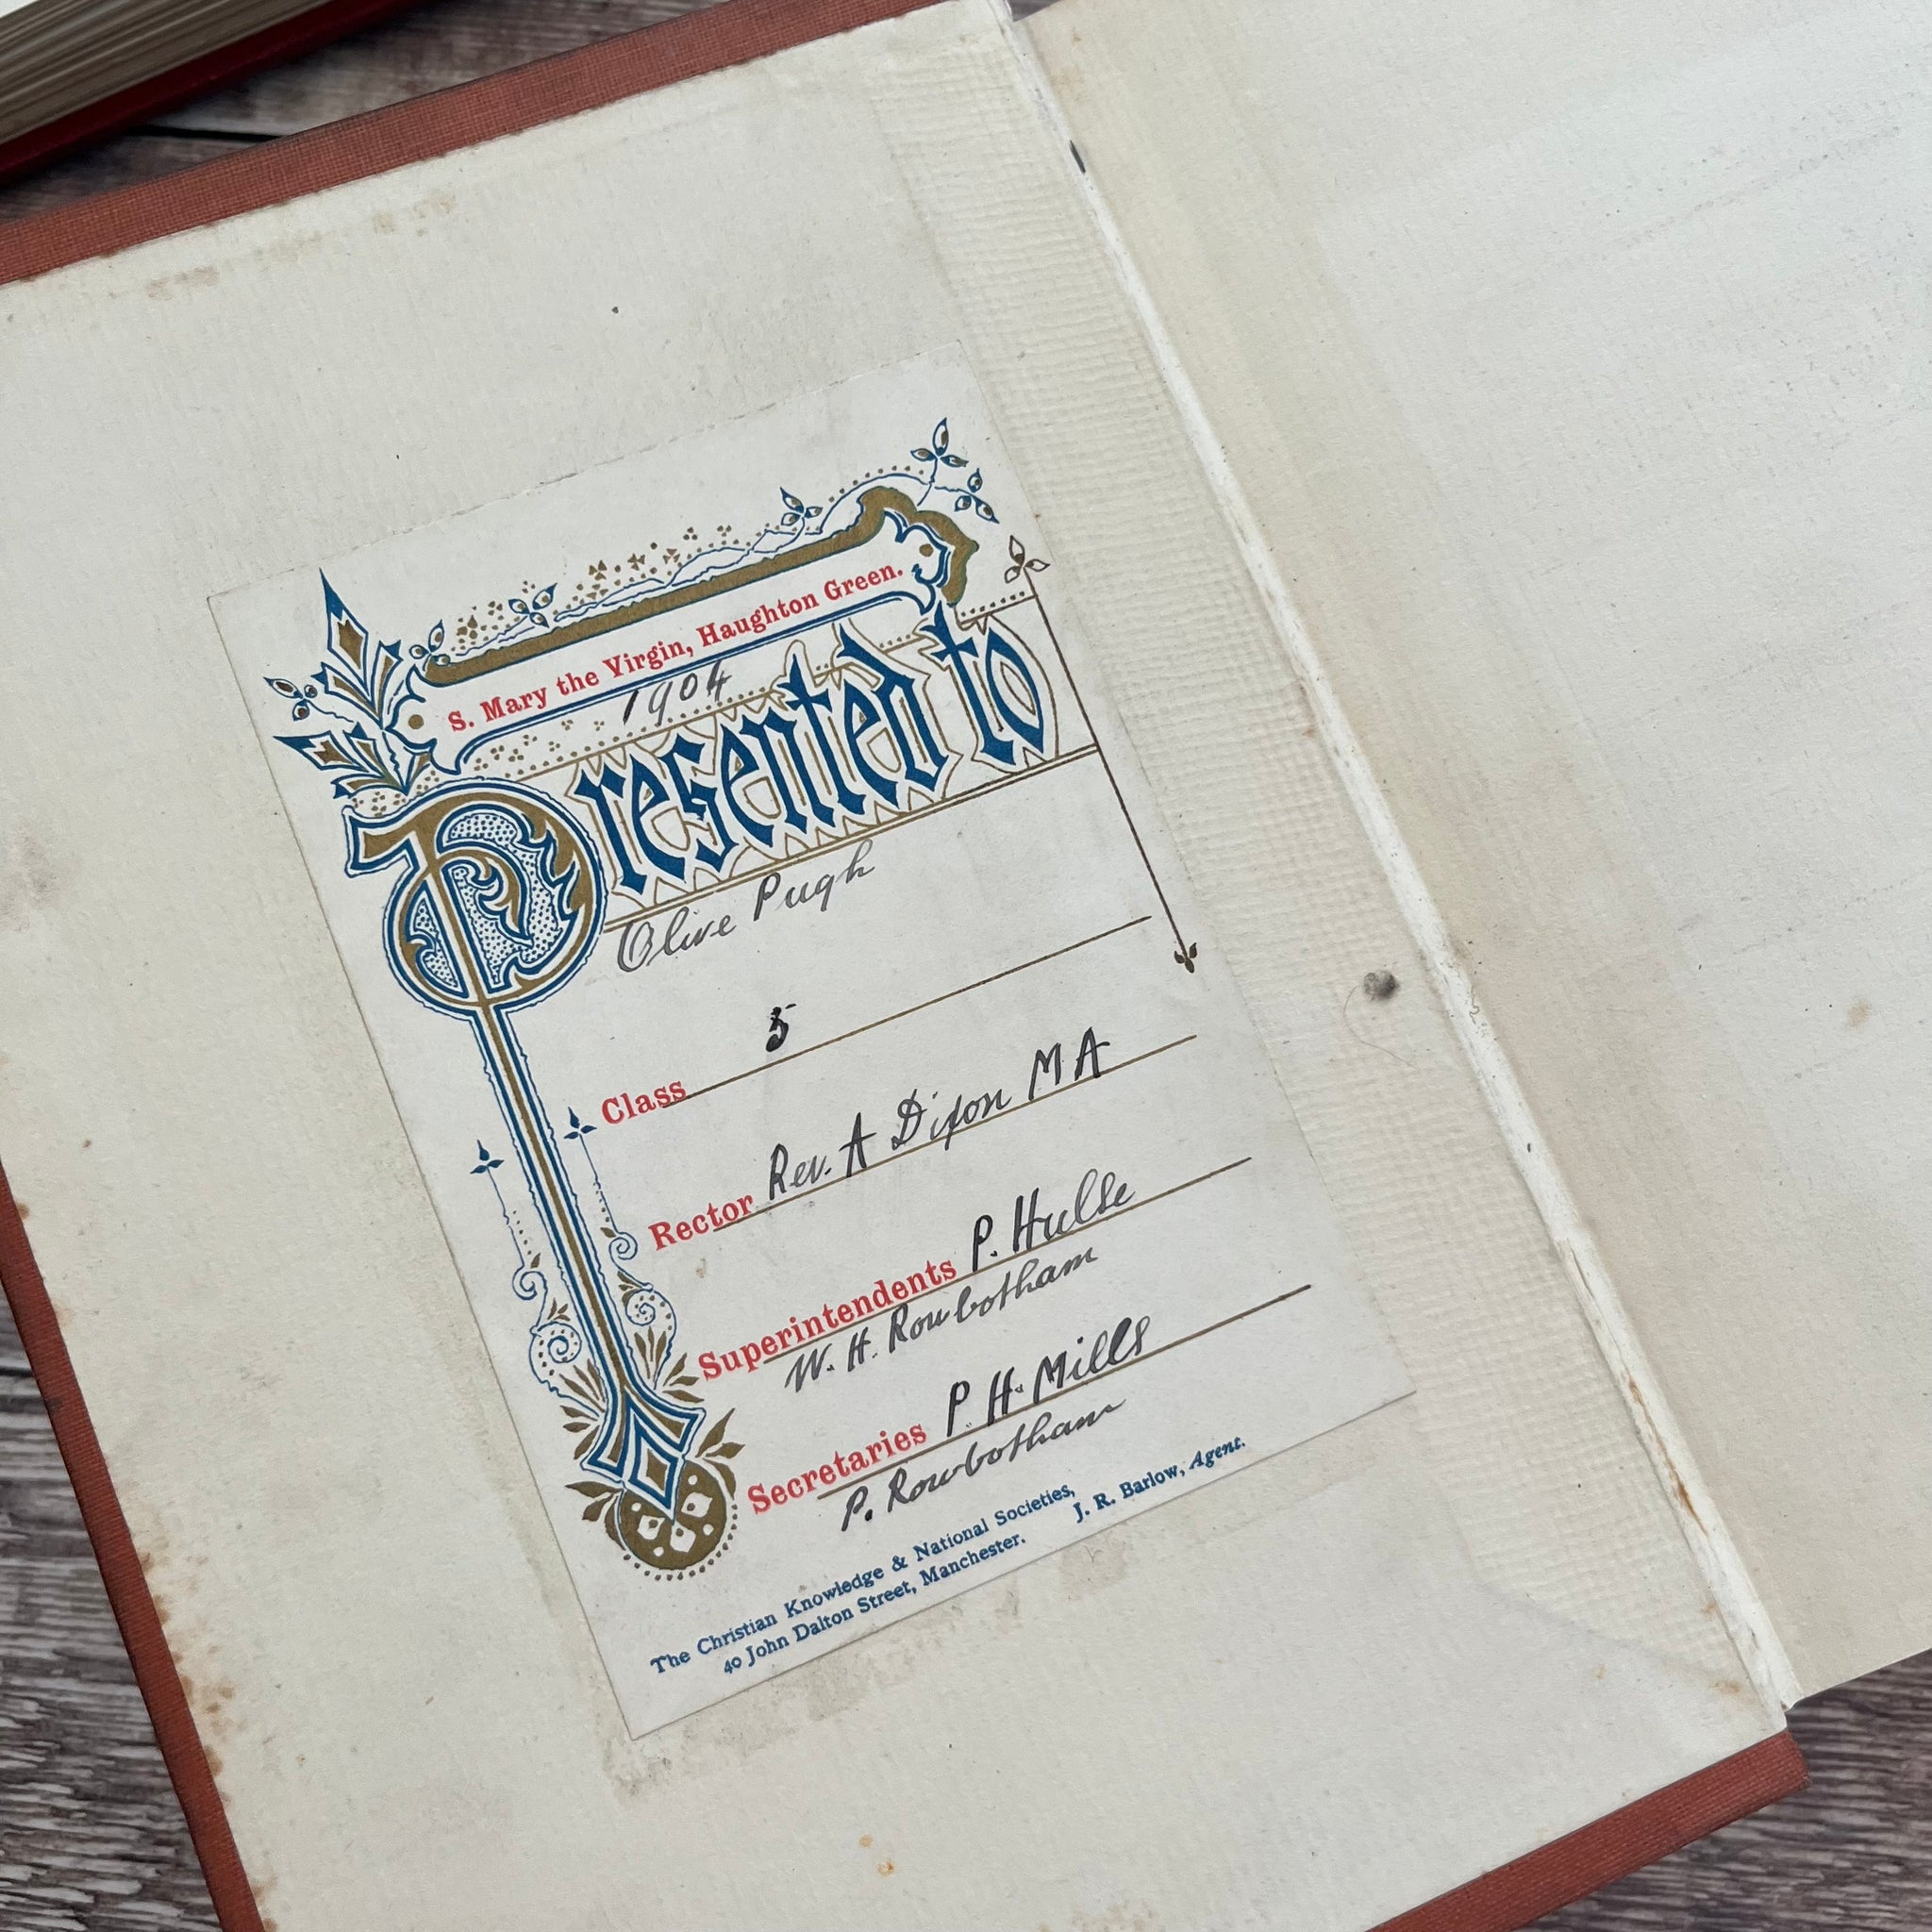 S. Mary the Virgin, Haughton Green.
1904
Presented to
Olive Pugh
Class 5
Rector Rev. A Dixon M A
Superintendents P. Hulse
W. H. Rowbotham
Secretaries P. H. Mills
P. Rowbotham
The Christian Knowledge & National Societies,
40 John Dalton Street, Manchester. J. R. Barlow, Agent.